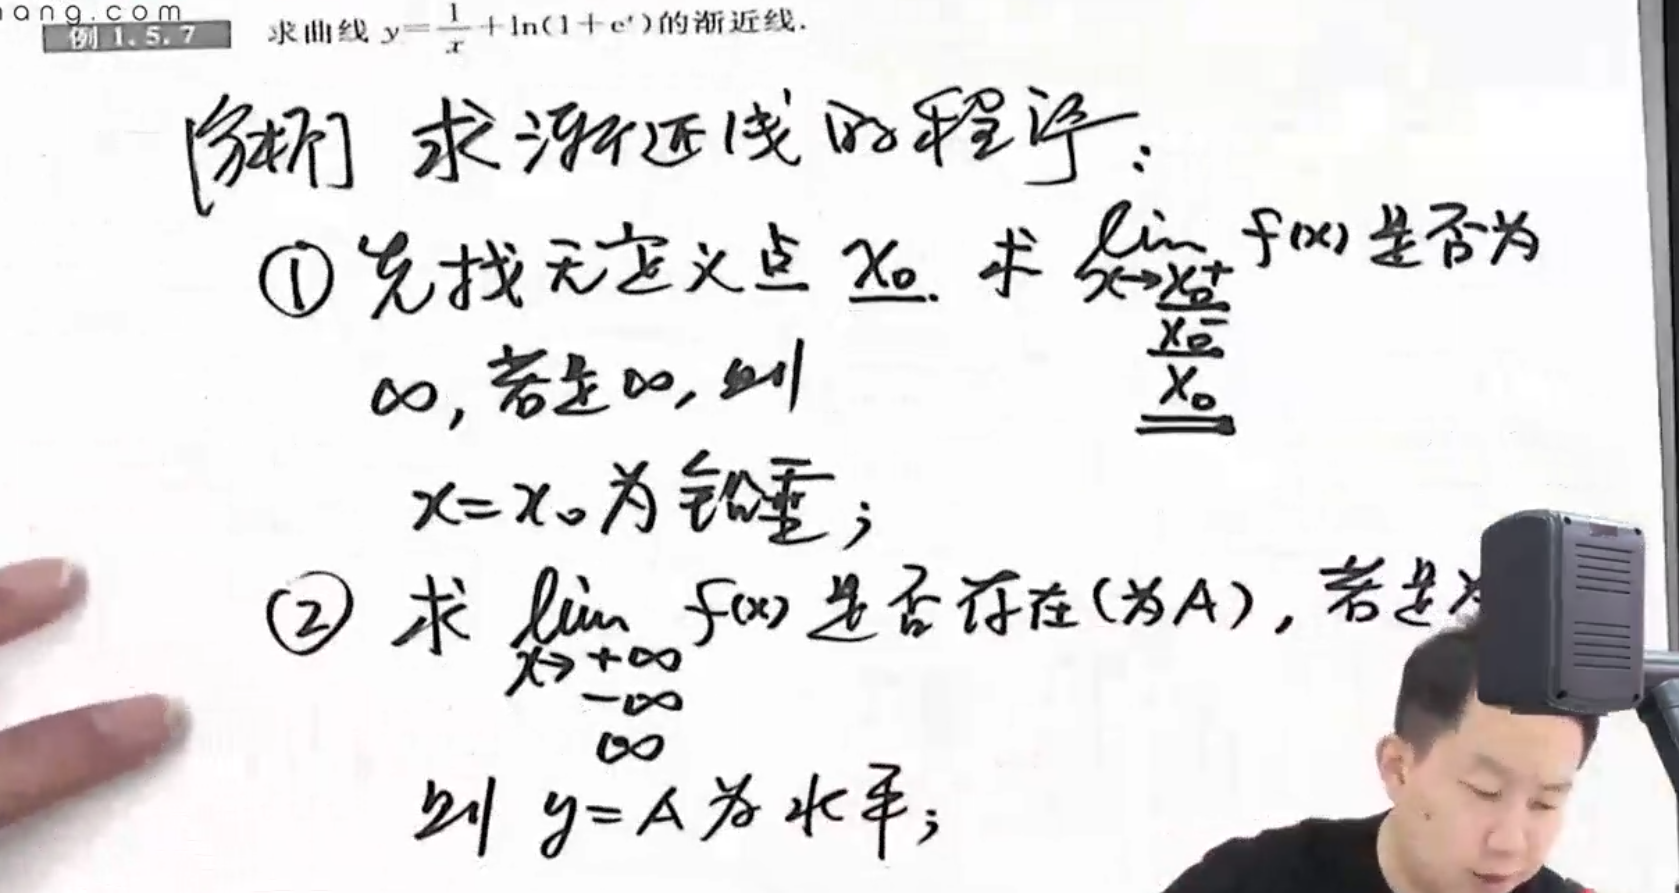 ang.com
例 1.5.7 求曲线 y=1/x+ln(1+eˣ)的渐近线.
[分析] 求渐近线的程序:
① 先找无定义点 x₀. 求 lim f(x) 是否为
x→x₀⁺
x₀⁻
x₀
∞, 若是∞, 则
x=x₀为铅垂;
② 求 lim f(x) 是否存在(为A), 若是为
x→+∞
-∞
∞
则 y=A 为水平;